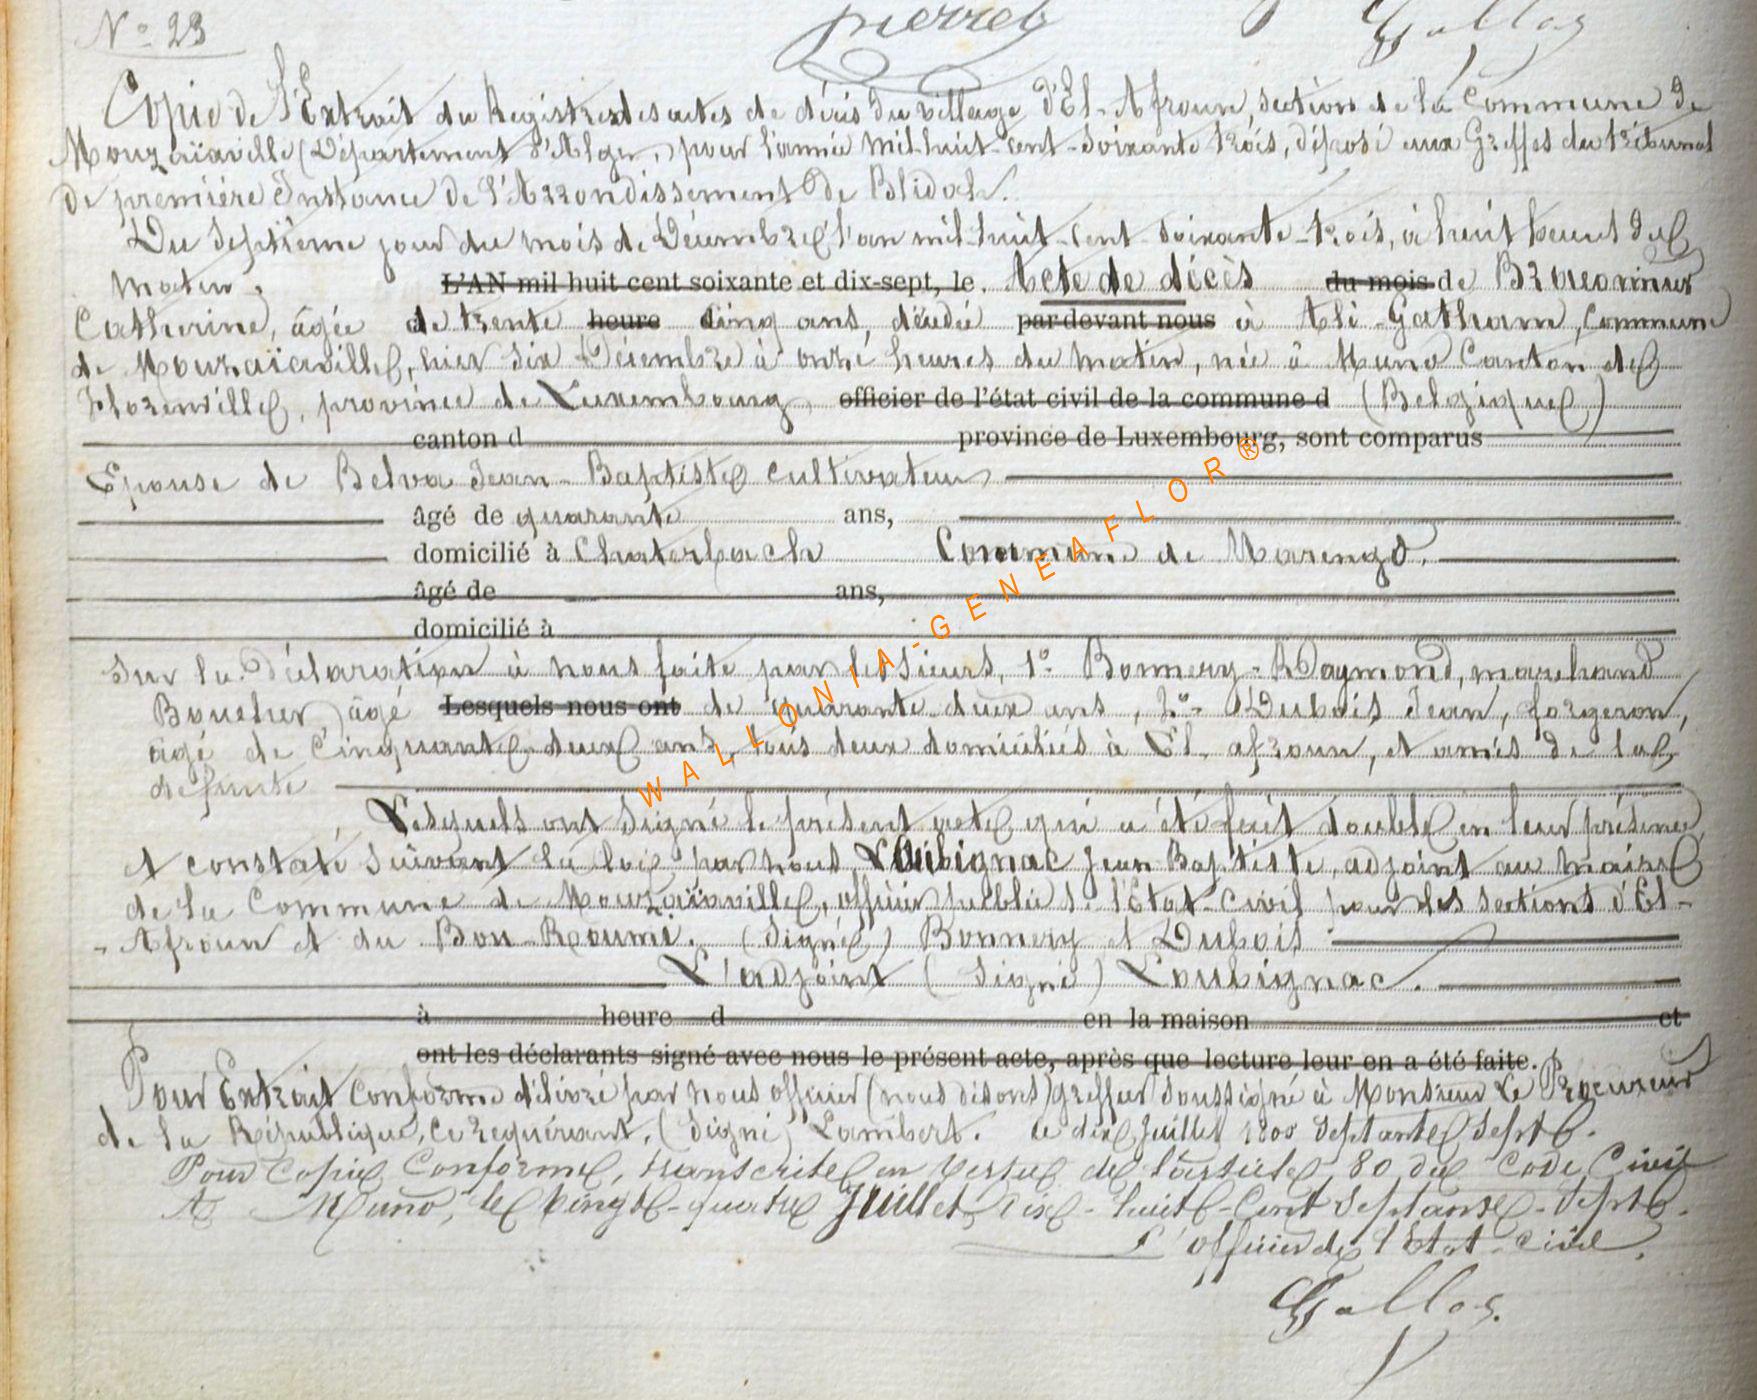 N° 23
pierret Gallos
Copie de l'Extrait du Registre des actes de décès du village d'El-Afroun, section de la Commune de
Mouzaïaville (Département d'Alger,) pour l'année mil-huit-cent-soixante trois, déposé aux Greffes du tribunal
de première Instance de l'Arrondissement de Blidah.
Du Septième jour du mois de Décembre l'an mil-huit-cent-soixante-trois, à huit heures du
matin. L'AN mil huit cent soixante et dix-sept, le. Acte de décès du mois de
Catherine, âgée de trente heure cinq ans, décédée par devant nous à Commune
de Mouzaïaville, hier six Décembre à onze heures du matin, née à Muno Canton de
Florenville, province de Luxembourg officier de l'état civil de la commune d (Belgique)
canton d province de Luxembourg, sont comparus
Epouse de Belva Jean-Baptiste cultivateur
âgé de quarante ans,
domicilié à Chaterbach Commune de Marengo.
âgé de ans,
domicilié à
Sur la Déclaration à nous faite par les sieurs, 1° Bonnery-Raymond, marchand
Boucher, âgé Lesquels nous ont de quarante-deux ans, 2° Dubois Jean, forgeron,
âgé de Cinquante-deux ans, tous deux domiciliés à El. afroun, et amis de la
défunte
Lesquels ont signé le présent acte, qui a été fait double en leur présence,
et constaté suivant la loi, par nous, Loubignac Jean Baptiste, adjoint au maire
de la Commune de Mouzaïaville, officier public de l'Etat-Civil pour les sections d'El-
-Afroun et du Bou-Roumi. (Signé) Bonnery et Dubois
L'adjoint (Signé) Loubignac.
à heure d en la maison et
ont les déclarants signé avec nous le présent acte, après que lecture leur en a été faite.
Pour Extrait Conforme délivré par nous officier (nous disons) greffier soussigné à Monsieur Le Procureur
de la République, ce requérant, (Signé) Lambert. le dix Juillet 1800 Septante Sept.
Pour Copie Conforme, transcrite en vertu de l'article 80 du Code Civil
A Muno, le Vingt-quatre Juillet Dix-huit-Cent Septante-Sept.
L'officier de l'Etat-Civil.
Gallos.
WALLONIA-GENEAFLOR®